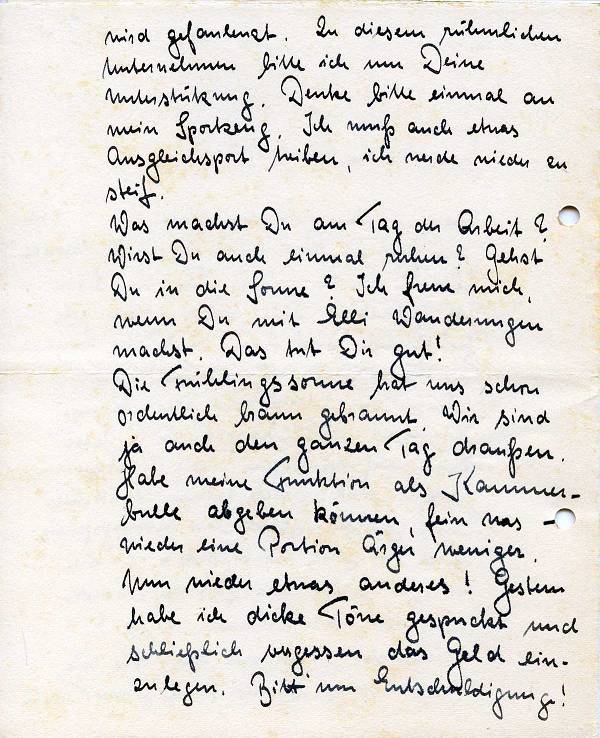 wird gefaulenzt. Zu diesem rühmlichen
Unternehmen bitte ich um Deine
Unterstützung. Denke bitte einmal an
mein Sportzeug. Ich muß auch etwas
Ausgleichsport treiben, ich werde wieder zu
steif.
Was machst Du am Tag der Arbeit?
Wirst Du auch einmal ruhen? Gehst
Du in die Sonne? Ich freue mich,
wenn Du mit Elli Wanderungen
machst. Das tut Dir gut!
Die Frühlingssonne hat uns schon
ordentlich braun gebrannt. Wir sind
ja auch den ganzen Tag draußen.
Habe meine Funktion als Kammer-
bulle abgeben können, fein was –
wieder eine Portion Ärger weniger.
Nun wieder etwas anderes! Gestern
habe ich dicke Töne gespuckt und
schließlich vergessen das Geld ein-
zulegen. Bitt' um Entschuldigung!